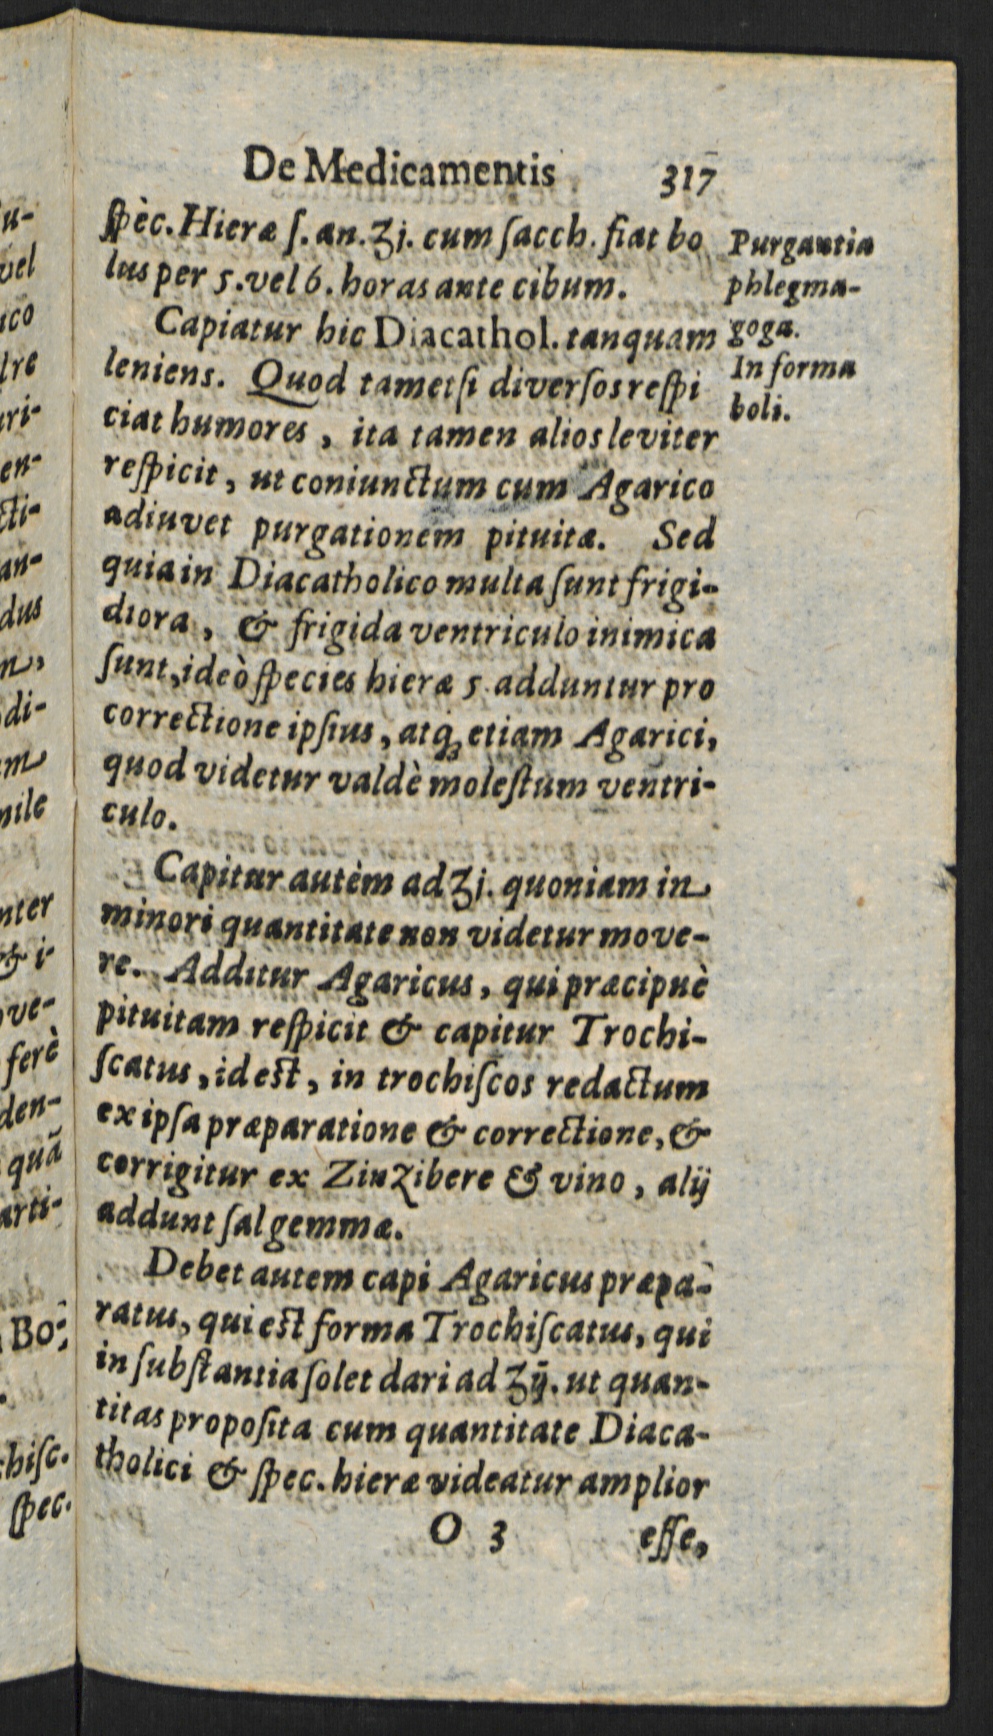 De Medicamentis 317
ſpèc. Hieræ ſ. an. ʒj. cum ſacch. fiat bo
lus per 5. vel 6. horas ante cibum.
Purgantia
phlegma-
goga.
In forma
boli.
Capiatur hic Diacathol. tanquam
leniens. Quod tametſi diverſos reſpi
ciat humores, ita tamen alios leviter
reſpicit, ut coniunctum cum Agarico
adiuvet purgationem pituitæ. Sed
quia in Diacatholico multa ſunt frigi-
diora, & frigida ventriculo inimica
ſunt, ideò ſpecies hieræ 5. adduntur pro
correctione ipſius, atq́ꝫ etiam Agarici,
quod videtur valdè moleſtum ventri-
culo.
Capitur autèm ad ʒj. quoniam in
minori quantitate non videtur move-
re. Additur Agaricus, qui præcipuè
pituitam reſpicit & capitur Trochi-
ſcatus, id eſt, in trochiſcos redactum
ex ipſa præparatione & correctione, &
corrigitur ex Zinzibere & vino, alij
addunt ſal gemmæ.
Debet autem capi Agaricus præpa-
ratus, qui eſt forma Trochiſcatus, qui
in ſubſtantia ſolet dari ad ʒij. ut quan-
titas propoſita cum quantitate Diaca-
tholici & ſpec. hieræ videatur amplior
O 3 eſſe,
u-
vel
ico
lre
uri-
en-
cti-
an-
dus
n,
di-
em
nile
nter
& i-
ove-
ferè
den-
quā
arti-
Bo-
chiſc.
ſpec.